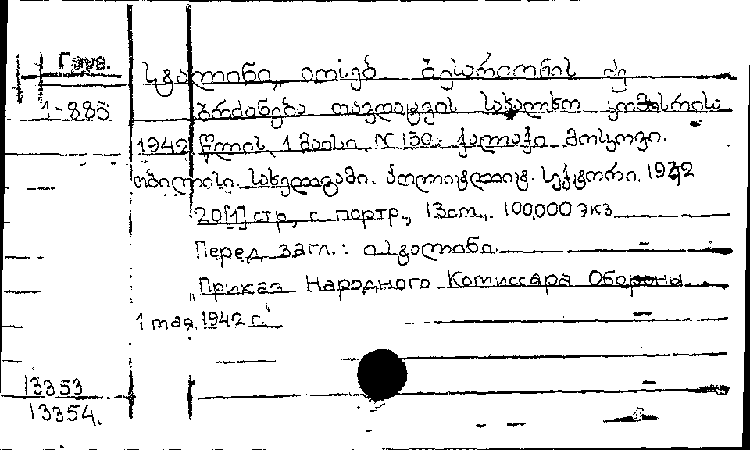 Груз.
სტალინი, იოსებ ბესარიონის ძე
1-885
ბრძანება თავდაცვის სახალხო კომისრისა
1942 წლის 1 მაისი N 130. ქალაქი მოსკოვი.
თბილისი. სახელგამი. პოლიტლიტ. სექტორი. 1942
20[1] стр, с портр., 13см., 100,000 экз
Перед загл.: ი. სტალინი.
"Приказ Народного Комиссара Обороны
1 мая 1942 г."
13353
13354.